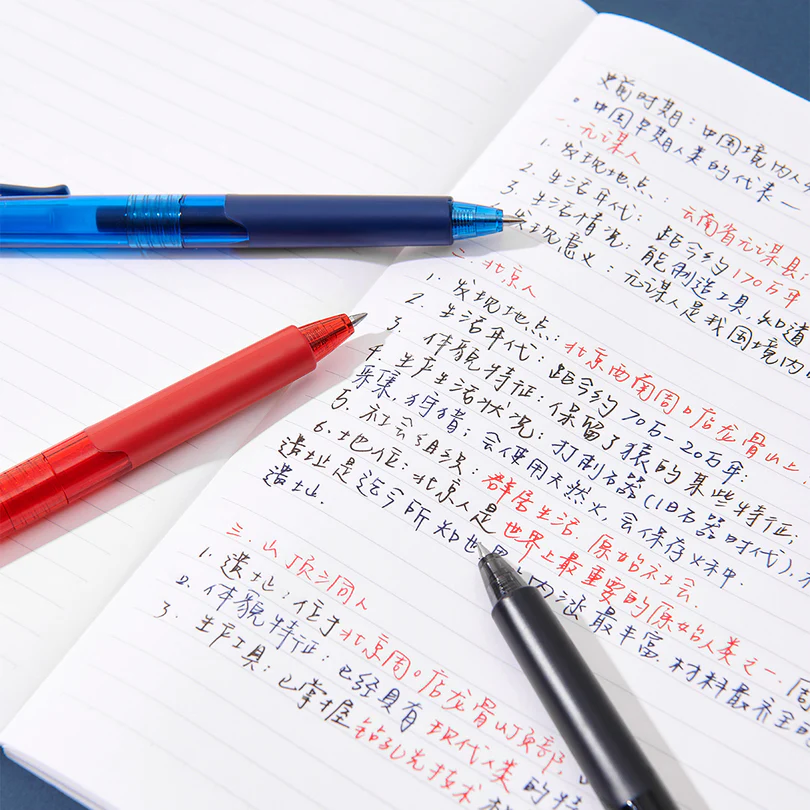 史前时期：中国境内人
。中国早期人类的代表一
一、元谋人
1. 发现地点：云南省元谋县；
2. 生活年代：距今约170万年
3. 生活情况：能制造工具，知道
发现意义：元谋人是我国境内
二、北京人
1. 发现地点：北京西南周口店龙骨山上.
2. 生活年代：距今约70万-20万年；
3. 体貌特征：保留了猿的某些特征；
4. 生产生活状况：打制石器（旧石器时代），
采集，狩猎；会使用天然火，会保存火种.
5. 社会组织：群居生活. 原始社会.
6. 地位：北京人是世界上最重要的原始人类之一.
遗址是迄今所知世界上内涵最丰富. 材料最齐全的
遗址.
三、山顶洞人
1. 遗址：位于北京周口店龙骨山顶部.
2. 体貌特征：已经具有现代人类的特
3. 生产工具：已掌握钻孔技术